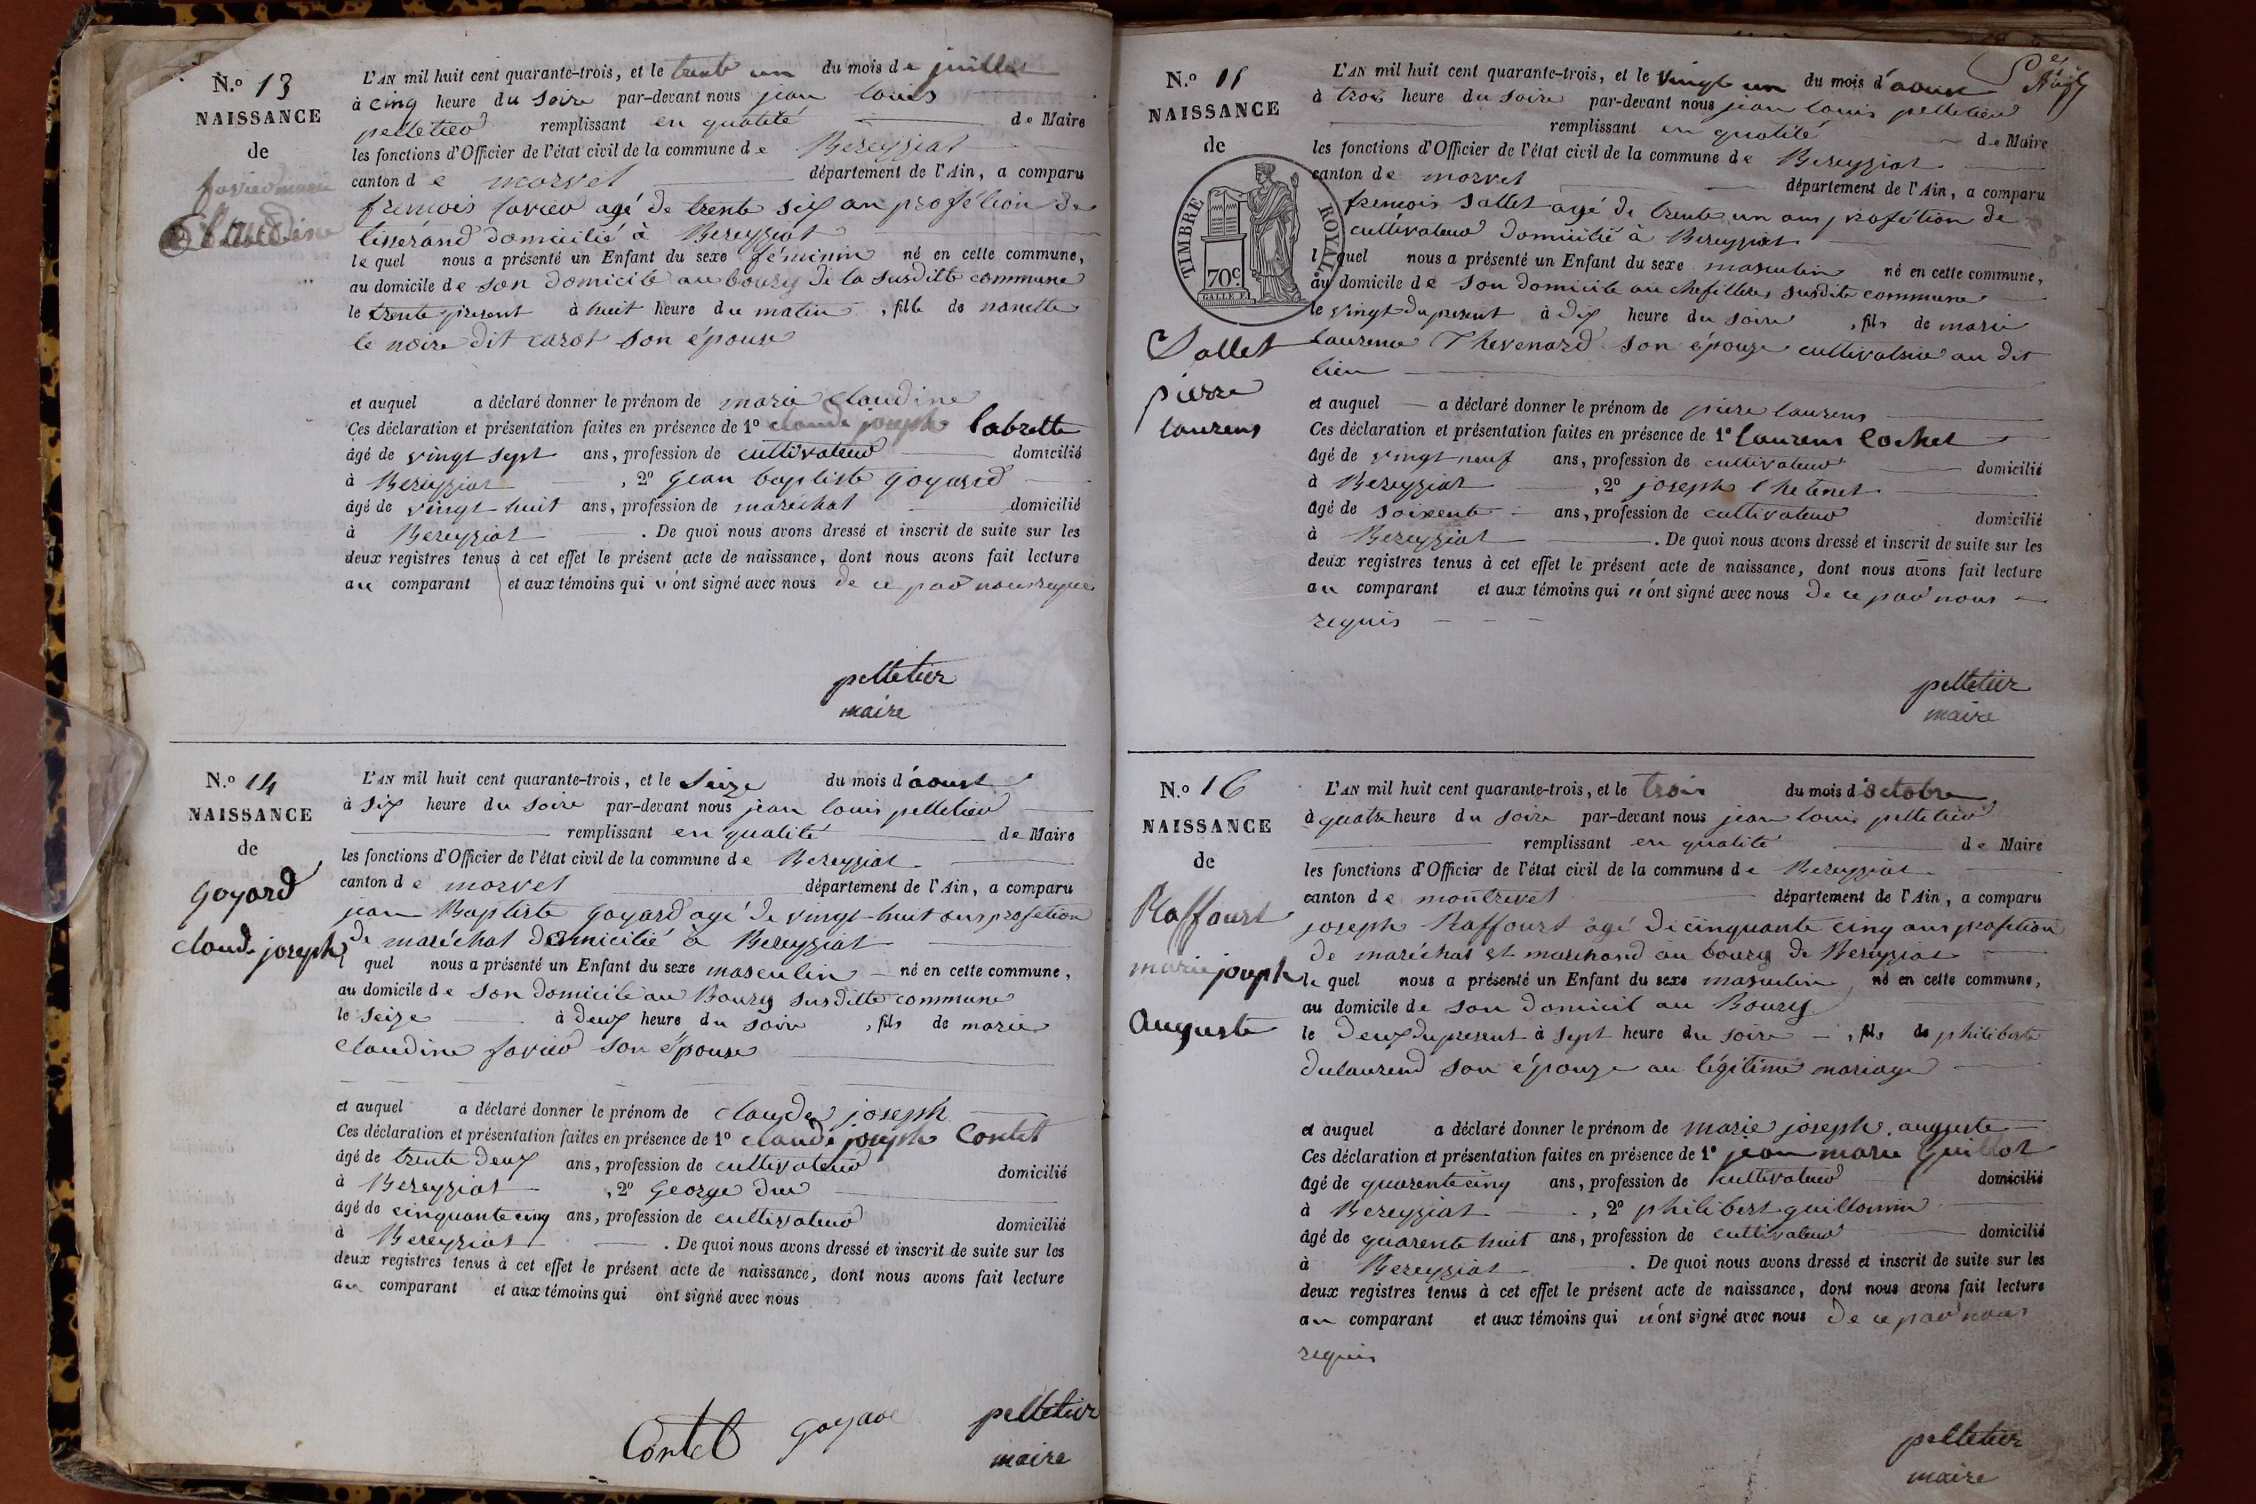 N.º 13
NAISSANCE
de
favier marie
Claudine
L'AN mil huit cent quarante-trois, et le trente un du mois de juillet
à cinq heure du soire par-devant nous jean louis
pelletier remplissant en qualité de Maire
les fonctions d'Officier de l'état civil de la commune de Bereyziat
canton de marvet département de l'Ain, a comparu
fremcois favier agé de trente six an profétion de
tisserand domicilié à Bereyziat
lequel nous a présenté un Enfant du sexe féminin né en cette commune,
au domicile de son domicile au bourg de la susditte commune
le trente present à huit heure du matin, fille de nanette
le noire dit carot son épouse
et auquel a déclaré donner le prénom de marie claudine
Ces déclaration et présentation faites en présence de 1º claude joseph labrette
âgé de vingt sept ans, profession de cultivateur domicilié
à Bereyziat, 2º jean baptiste goyard
âgé de vingt huit ans, profession de maréchat domicilié
à Bereyziat. De quoi nous avons dressé et inscrit de suite sur les
deux registres tenus à cet effet le présent acte de naissance, dont nous avons fait lecture
au comparant et aux témoins qui n'ont signé avec nous de ce par nous requis
pelletier
maire
N.º 14
NAISSANCE
de
goyard
claude joseph
L'AN mil huit cent quarante-trois, et le seize du mois d'aoust
à six heure du soire par-devant nous jean louis pelletier
remplissant en qualité de Maire
les fonctions d'Officier de l'état civil de la commune de Bereyziat
canton de marvet département de l'Ain, a comparu
jean Baptiste goyard agé de vingt-huit ans profétion
de maréchat domicilié à Bereyziat
lquel nous a présenté un Enfant du sexe masculin né en cette commune,
au domicile de son domicile au Bourg susditte commune
le seize à deux heure du soire, fils de marie
claudine favier son épouse
et auquel a déclaré donner le prénom de claude joseph
Ces déclaration et présentation faites en présence de 1º claude joseph Contet
âgé de trente deux ans, profession de cultivateur domicilié
à Bereyziat, 2º George
âgé de cinquante cinq ans, profession de cultivateur domicilié
à Bereyziat. De quoi nous avons dressé et inscrit de suite sur les
deux registres tenus à cet effet le présent acte de naissance, dont nous avons fait lecture
au comparant et aux témoins qui ont signé avec nous
Contet goyard pelletier
maire
N.º 15
NAISSANCE
de
TIMBRE ROYAL
70c
Sallet
pierre
laurens
L'AN mil huit cent quarante-trois, et le vingt un du mois d'aoust
à trois heure du soire par-devant nous jean louis pelletier
remplissant en qualité de Maire
les fonctions d'Officier de l'état civil de la commune de Bereyziat
canton de marvet département de l'Ain, a comparu
fremcois sallet agé de trente un ans profétion de
cultivateur domicilié à Bereyziat
lquel nous a présenté un Enfant du sexe masculin né en cette commune,
au domicile de son domicile au susdite commune
le vingt du present à dix heure du soire, fils de marie
laurence Thevenard son épouze cultivatrice au dit
lieu
et auquel a déclaré donner le prénom de piere laurens
Ces déclaration et présentation faites en présence de 1º laurens Cochet
âgé de vingt neuf ans, profession de cultivateur domicilié
à Bereyziat, 2º joseph
âgé de soixente ans, profession de cultivateur domicilié
à Bereyziat. De quoi nous avons dressé et inscrit de suite sur les
deux registres tenus à cet effet le présent acte de naissance, dont nous avons fait lecture
au comparant et aux témoins qui n'ont signé avec nous de ce par nous
requis
pelletier
maire
N.º 16
NAISSANCE
de
Raffourt
marie joseph
auguste
L'AN mil huit cent quarante-trois, et le trois du mois d'octobre
à quatre heure du soire par-devant nous jean louis pelletier
remplissant en qualité de Maire
les fonctions d'Officier de l'état civil de la commune de Bereyziat
canton de montrevet département de l'Ain, a comparu
joseph Raffourt âgé de cinquante cinq ans profétion
de maréchat et marchand au bourg de Bereyziat
lequel nous a présenté un Enfant du sexe masculin, né en cette commune,
au domicile de son domicil au Bourg
le deux du present à sept heure du soire, fils de philiberte
dulaurend son épouze au légitime mariage
et auquel a déclaré donner le prénom de marie joseph auguste
Ces déclaration et présentation faites en présence de 1º jean marie Guillot
âgé de quarente cinq ans, profession de cultivateur domicilié
à Bereyziat, 2º philibert guillomin
âgé de quarente huit ans, profession de cultivateur domicilié
à Bereyziat. De quoi nous avons dressé et inscrit de suite sur les
deux registres tenus à cet effet le présent acte de naissance, dont nous avons fait lecture
au comparant et aux témoins qui n'ont signé avec nous de ce par nous
requis
pelletier
maire